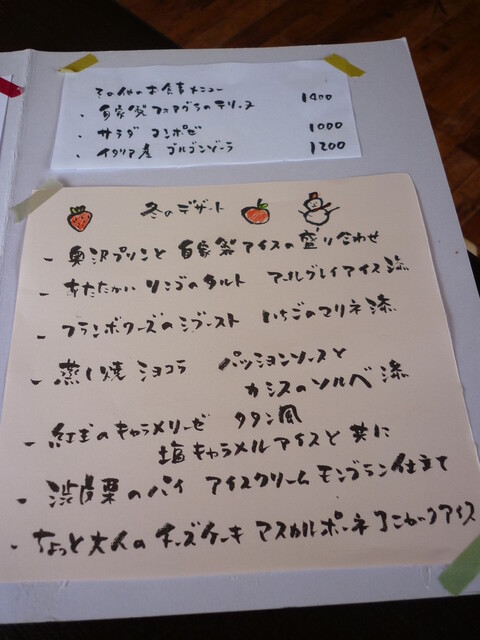 その他のお食事メニュー
・自家製フォアグラのテリーヌ 1400
・サラダ コンポゼ 1000
・イタリア産 ゴルゴンゾーラ 1200
冬のデザート
- 奥沢プリンと 自家製アイスの盛り合わせ
- あたたかい リンゴのタルト アールグレイアイス添
- フランボワーズのシブースト いちごのマリネ添
- 蒸し焼 ショコラ パッションソースと
カシスのソルベ添
- 紅玉のキャラメリーゼ タタン風
塩キャラメルアイスと共に
- 渋皮栗のパイ アイスクリーム モンブラン仕立て
- ちょっと大人の チーズケーキ マスカルポーネ アイス